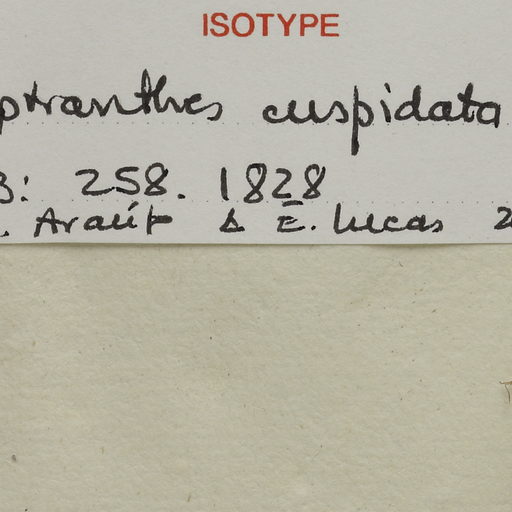 ISOTYPE
ptranthes cuspidata
3: 258. 1828
. Araújo & E. Lucas 2